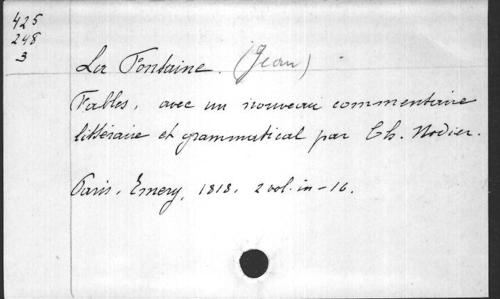 425
248
3
La Fontaine. (Jean)
Fables, avec un nouveau commentaire
littéraire et grammatical par Ch. Nodier.
Paris, Emery, 1818, 2 vol. in-16.